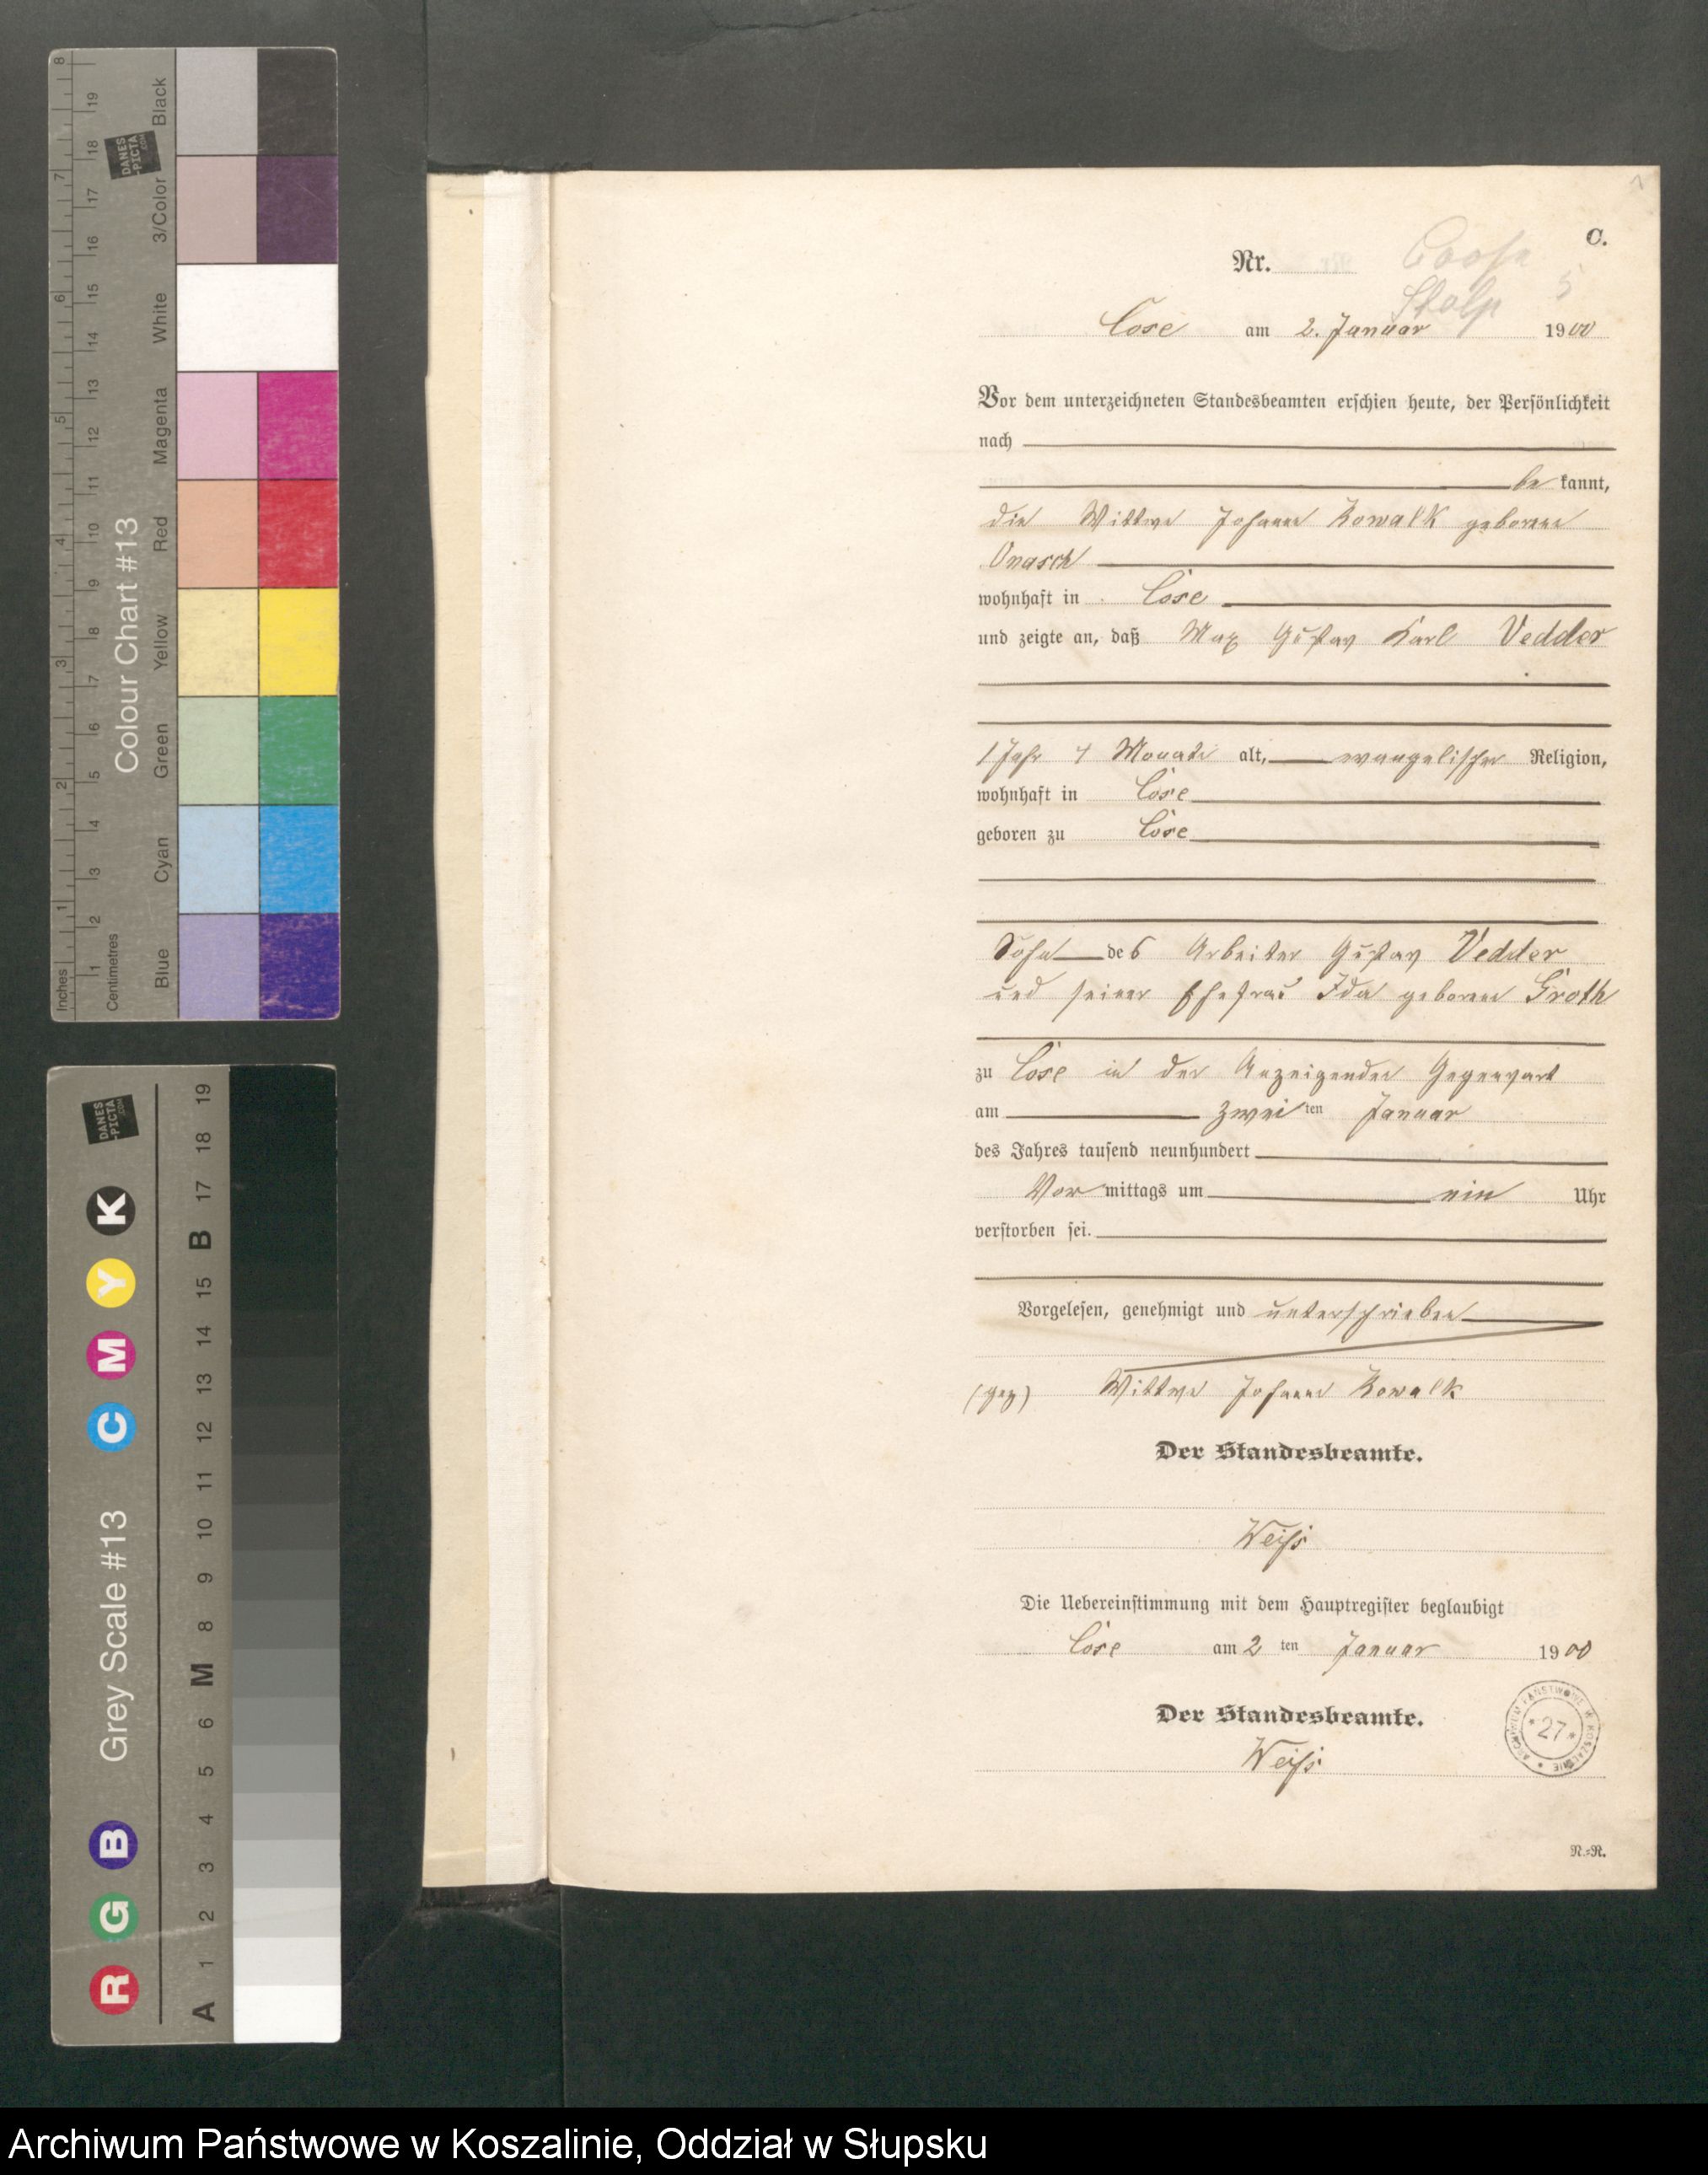 C.
Nr.
Coose
Stolp 5
Cose am 2. Januar 1900
Vor dem unterzeichneten Standesbeamten erschien heute, der Persönlichkeit
nach
be kannt,
die Wittwe Johanne Kowalk geborene
Onasch
wohnhaft in Cose
und zeigte an, daß Max Gustav Karl Vedder
1 Jahr 4 Monate alt, evangelischer Religion,
wohnhaft in Cose
geboren zu Cose
Sohn des Arbeiter Gustav Vedder
und seiner Ehefrau Ida geborene Groth
zu Cose in der Anzeigenden Gegenwart
am zwei ten Januar
des Jahres tausend neunhundert
Vor mittags um ein Uhr
verstorben sei.
Vorgelesen, genehmigt und unterschrieben
(gez) Wittwe Johanne Kowalk
Der Standesbeamte.
Weiß
Die Uebereinstimmung mit dem Hauptregister beglaubigt
Cose am 2 ten Januar 1900
Der Standesbeamte.
Weiß
ARCHIWUM PAŃSTWOWE W KOSZALINIE
* 27 *
N.=R.
Inches
1 2 3 4 5 6 7 8
Centimetres
1 2 3 4 5 6 7 8 9 10 11 12 13 14 15 16 17 18 19
Colour Chart #13
DANES
-PICTA
.COM
Blue Cyan Green Yellow Red Magenta White 3/Color Black
DANES
-PICTA
.COM
R G B Grey Scale #13 C M Y K
A 1 2 3 4 5 6 M 8 9 10 11 12 13 14 15 B 17 18 19
Archiwum Państwowe w Koszalinie, Oddział w Słupsku